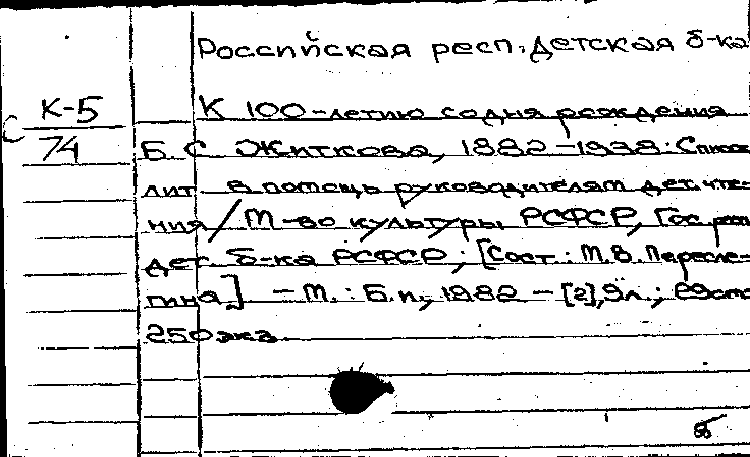 Российская респ. детская б-ка
С К-5
74
К 100-летию со дня рождения
Б. С. Житкова, 1882-1938: Список
лит. в помощь руководителям дет. чте-
ния / М-во культуры РСФСР, Гос. респ.
дет. б-ка РСФСР; [Сост.: М. В. Пересле-
гина] - М.: Б. и., 1982 - [2], 9 л.;
250 экз.